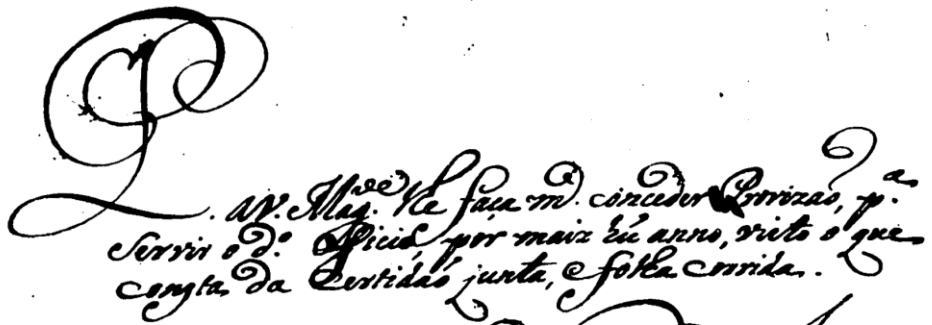 P.
a V. Mag.de lhe faça m.ce conceder Provizaõ, p.a
Servir o d.o Officio, por maiz hũ anno, visto o que
consta da Certidaõ junta, e folha corrida.